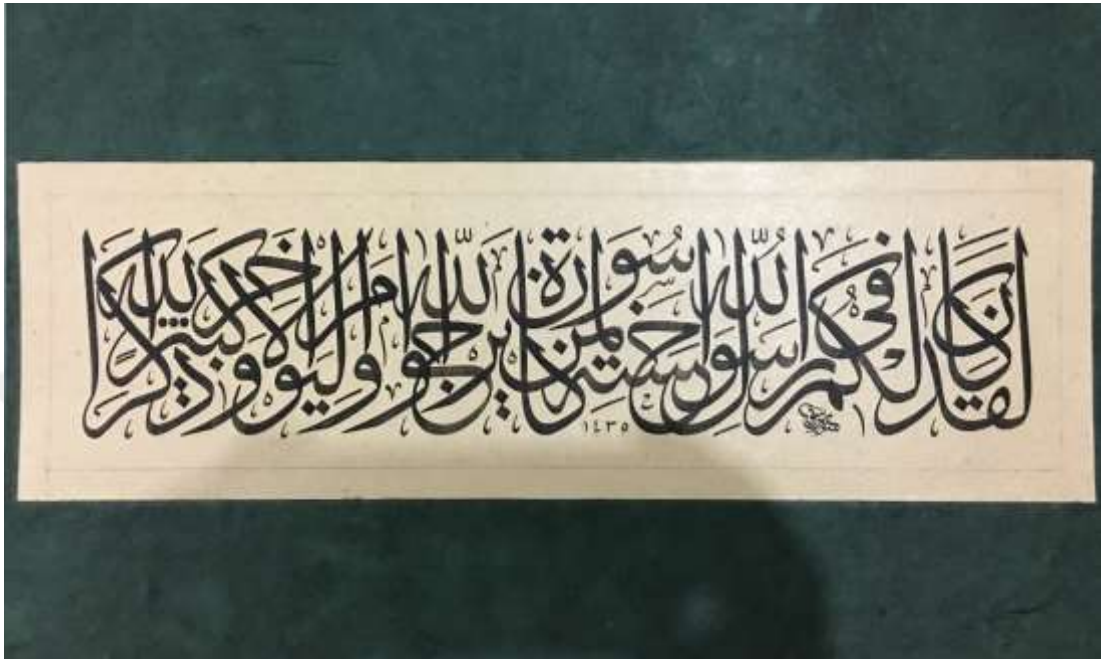 لقد كان لكم في رسول الله أسوة حسنة لمن كان يرجو الله واليوم الآخر وذكر الله كثيرا
١٤٣٥